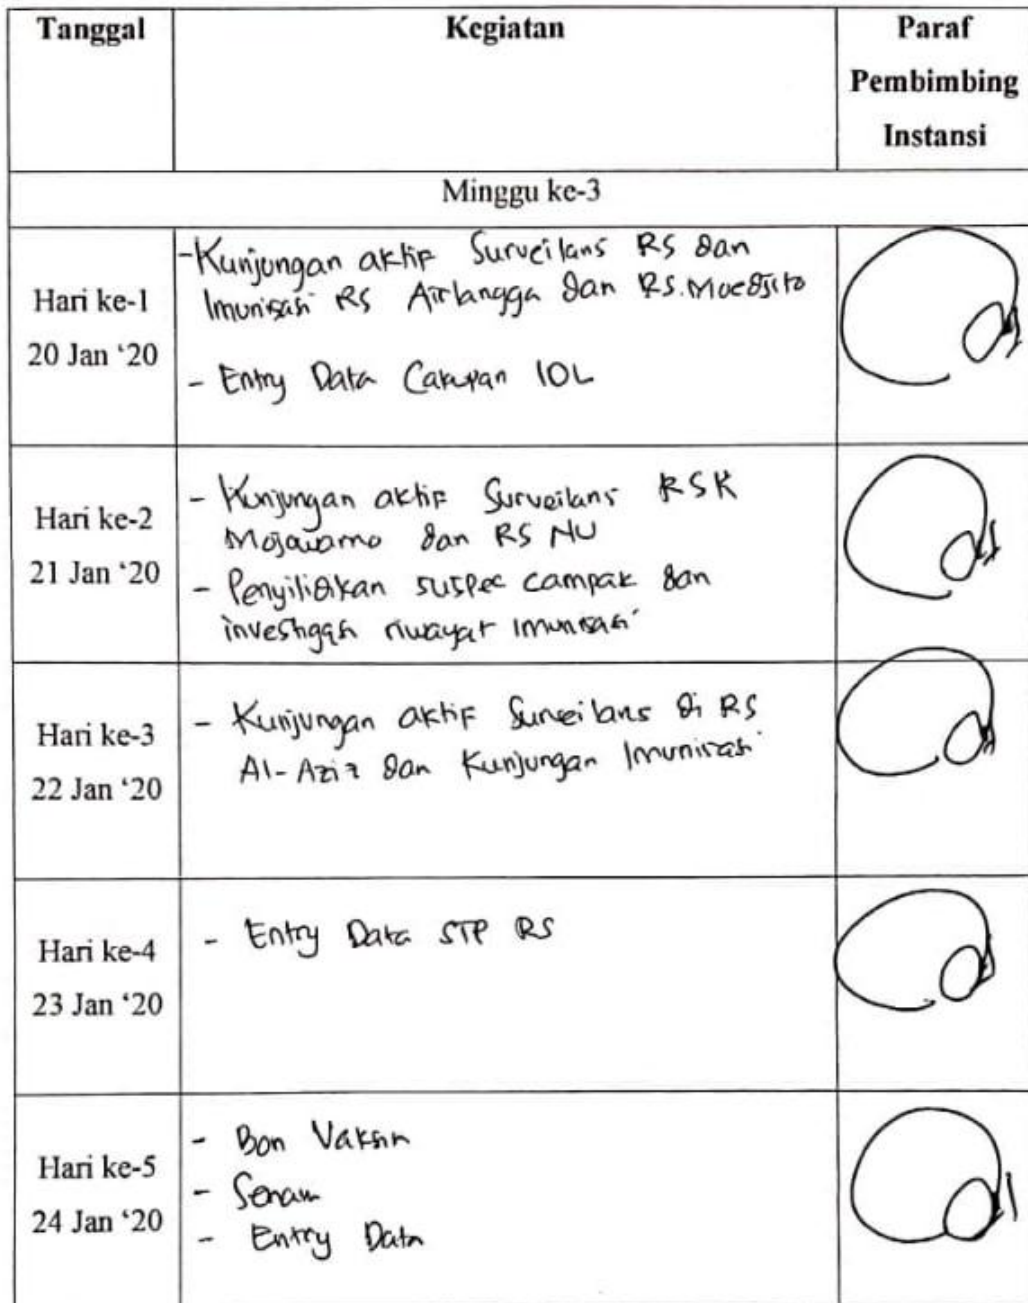 Tanggal
Kegiatan
Paraf
Pembimbing
Instansi
Minggu ke-3
Hari ke-1
20 Jan '20
- Kunjungan aktif Surveilans RS dan
Imunisasi RS Airlangga dan RS. Moedjito
- Entry Data Cakupan IDL
Hari ke-2
21 Jan '20
- Kunjungan aktif Surveilans RSK
Mojowarno dan RS NU
- Penyilidikan suspec campak dan
investigasi riwayat imunisasi
Hari ke-3
22 Jan '20
- Kunjungan aktif Surveilans di RS
Al-Aziz dan Kunjungan Imunisasi
Hari ke-4
23 Jan '20
- Entry Data STP RS
Hari ke-5
24 Jan '20
- Bon Vaksin
- Senam
- Entry Data